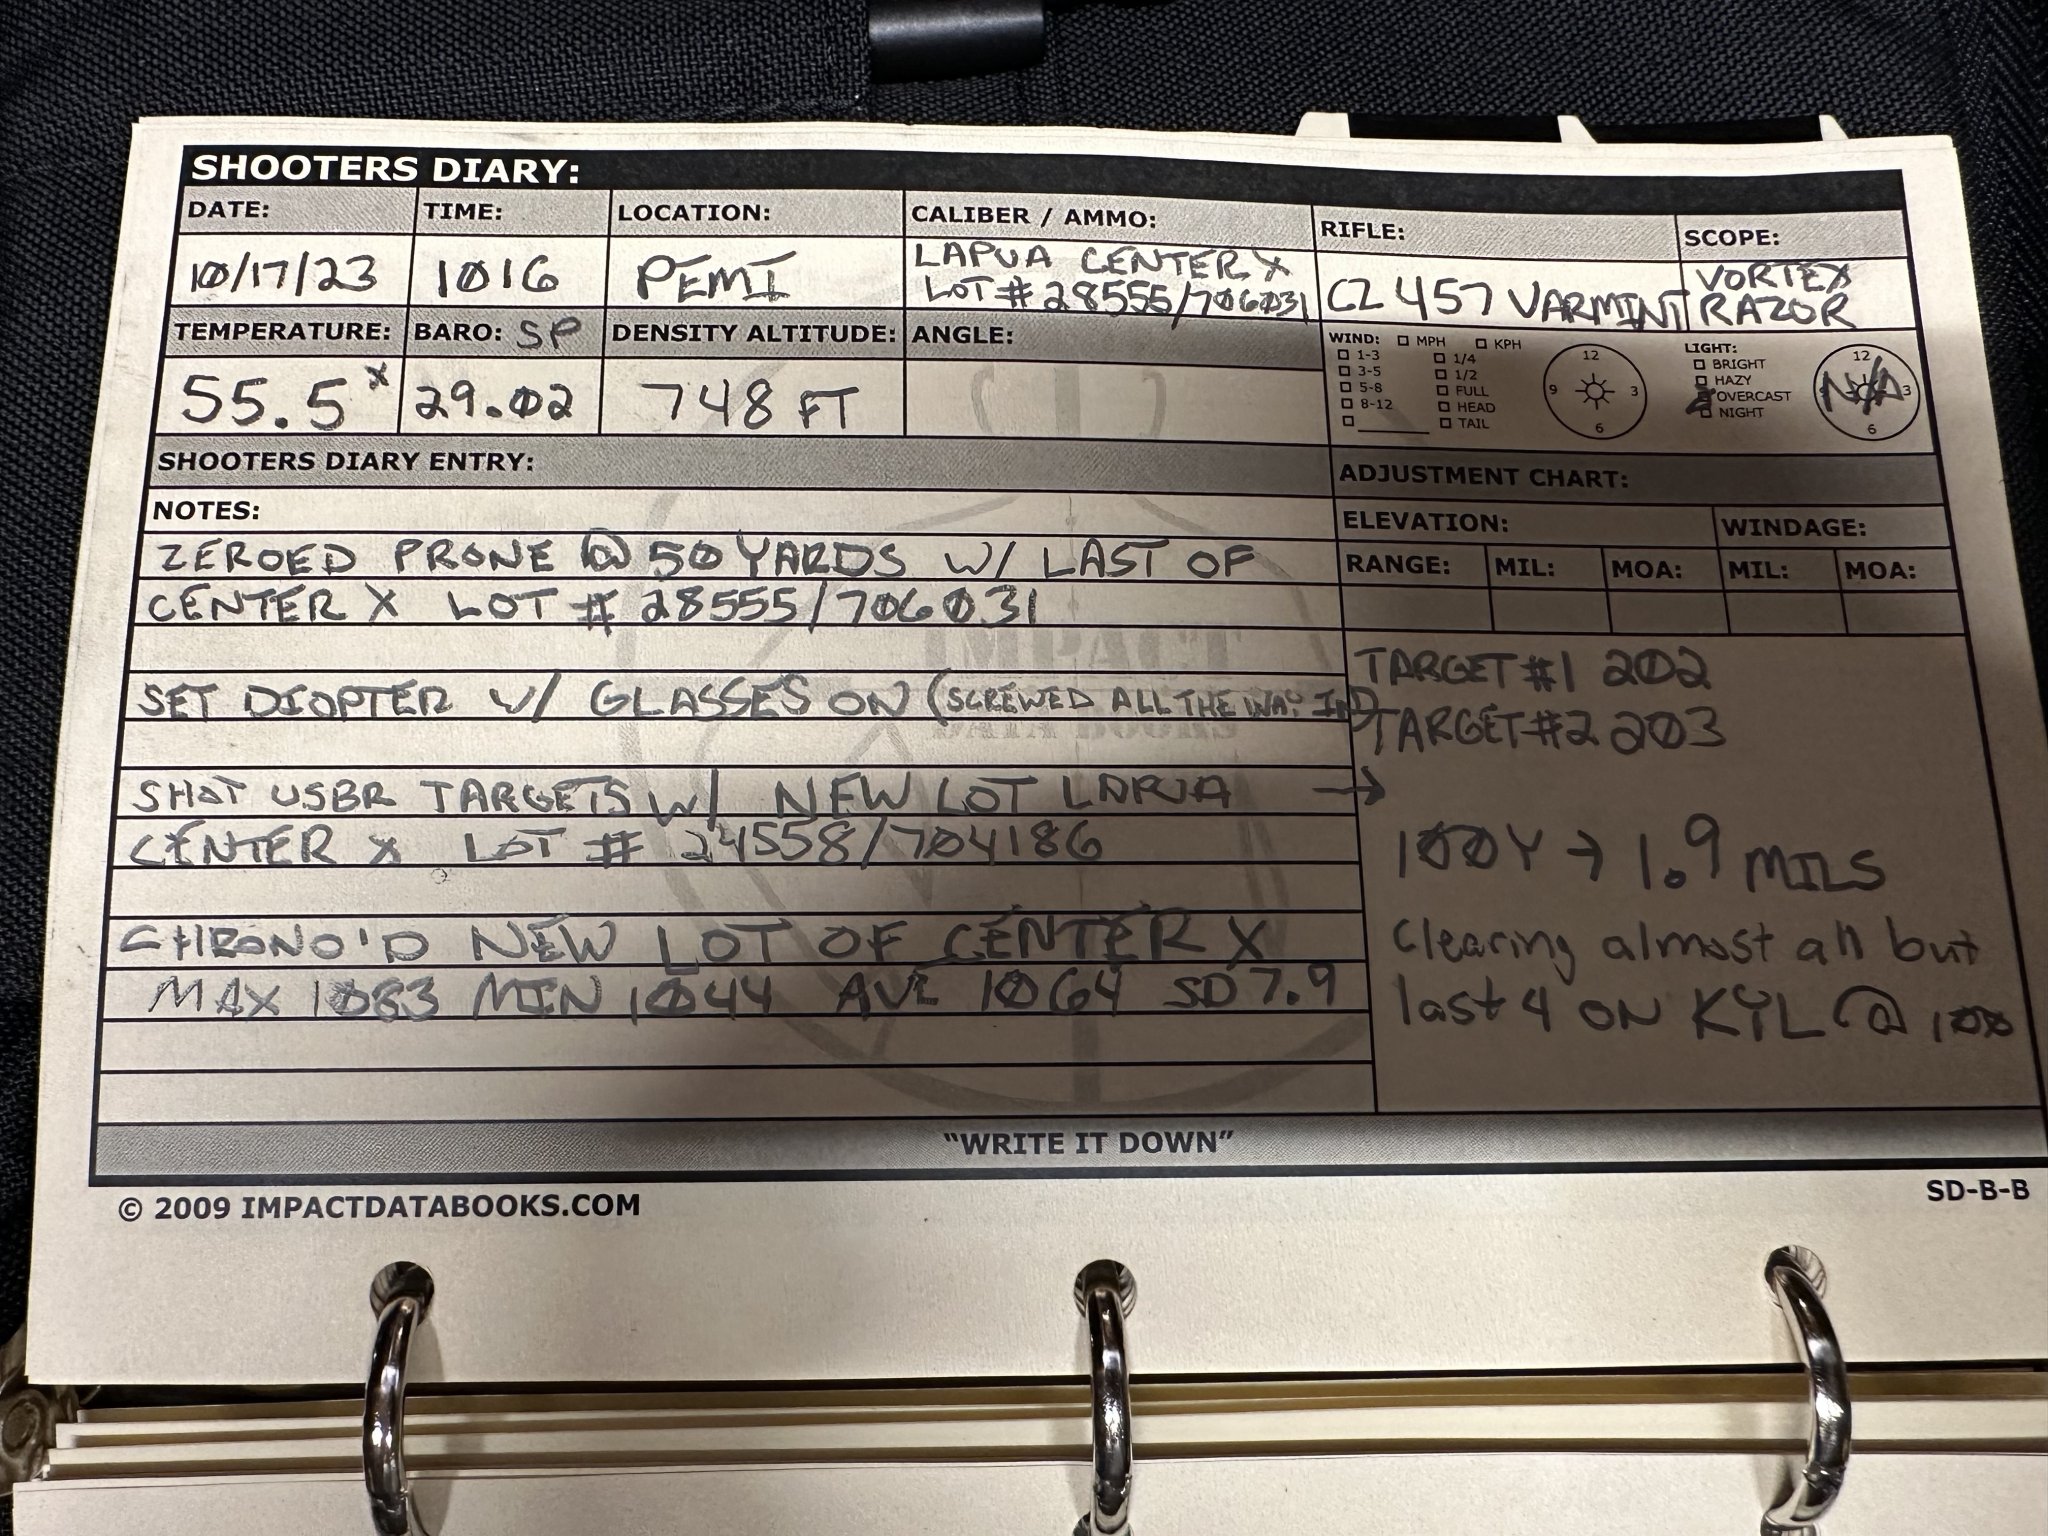 SHOOTERS DIARY:
DATE: TIME: LOCATION: CALIBER / AMMO: RIFLE: SCOPE:
10/17/23 1016 PEMI LAPUA CENTER X LOT # 28555/706031 CZ 457 VARMINT VORTEX RAZOR
TEMPERATURE: BARO: SP DENSITY ALTITUDE: ANGLE:
55.5 x 29.02 748 FT
WIND: MPH KPH
1-3 1/4
3-5 1/2
5-8 FULL
8-12 HEAD
TAIL
12
9 3
6
LIGHT:
BRIGHT
HAZY
OVERCAST
NIGHT
12
N/A 3
6
SHOOTERS DIARY ENTRY:
NOTES:
ZEROED PRONE @ 50 YARDS W/ LAST OF
CENTER X LOT # 28555/706031
SET DIOPTER W/ GLASSES ON (SCREWED ALL THE WAY IN)
SHOT USBR TARGETS W/ NEW LOT LAPUA →
CENTER X LOT # 24558/704186
CHRONO'D NEW LOT OF CENTER X
MAX 1083 MIN 1044 AVE 1064 SD 7.9
ADJUSTMENT CHART:
ELEVATION: WINDAGE:
RANGE: MIL: MOA: MIL: MOA:
TARGET #1 202
TARGET #2 203
100Y → 1.9 MILS
Clearing almost all but
last 4 ON KYL @ 100
IMPACT
DATA BOOKS
"WRITE IT DOWN"
© 2009 IMPACTDATABOOKS.COM SD-B-B